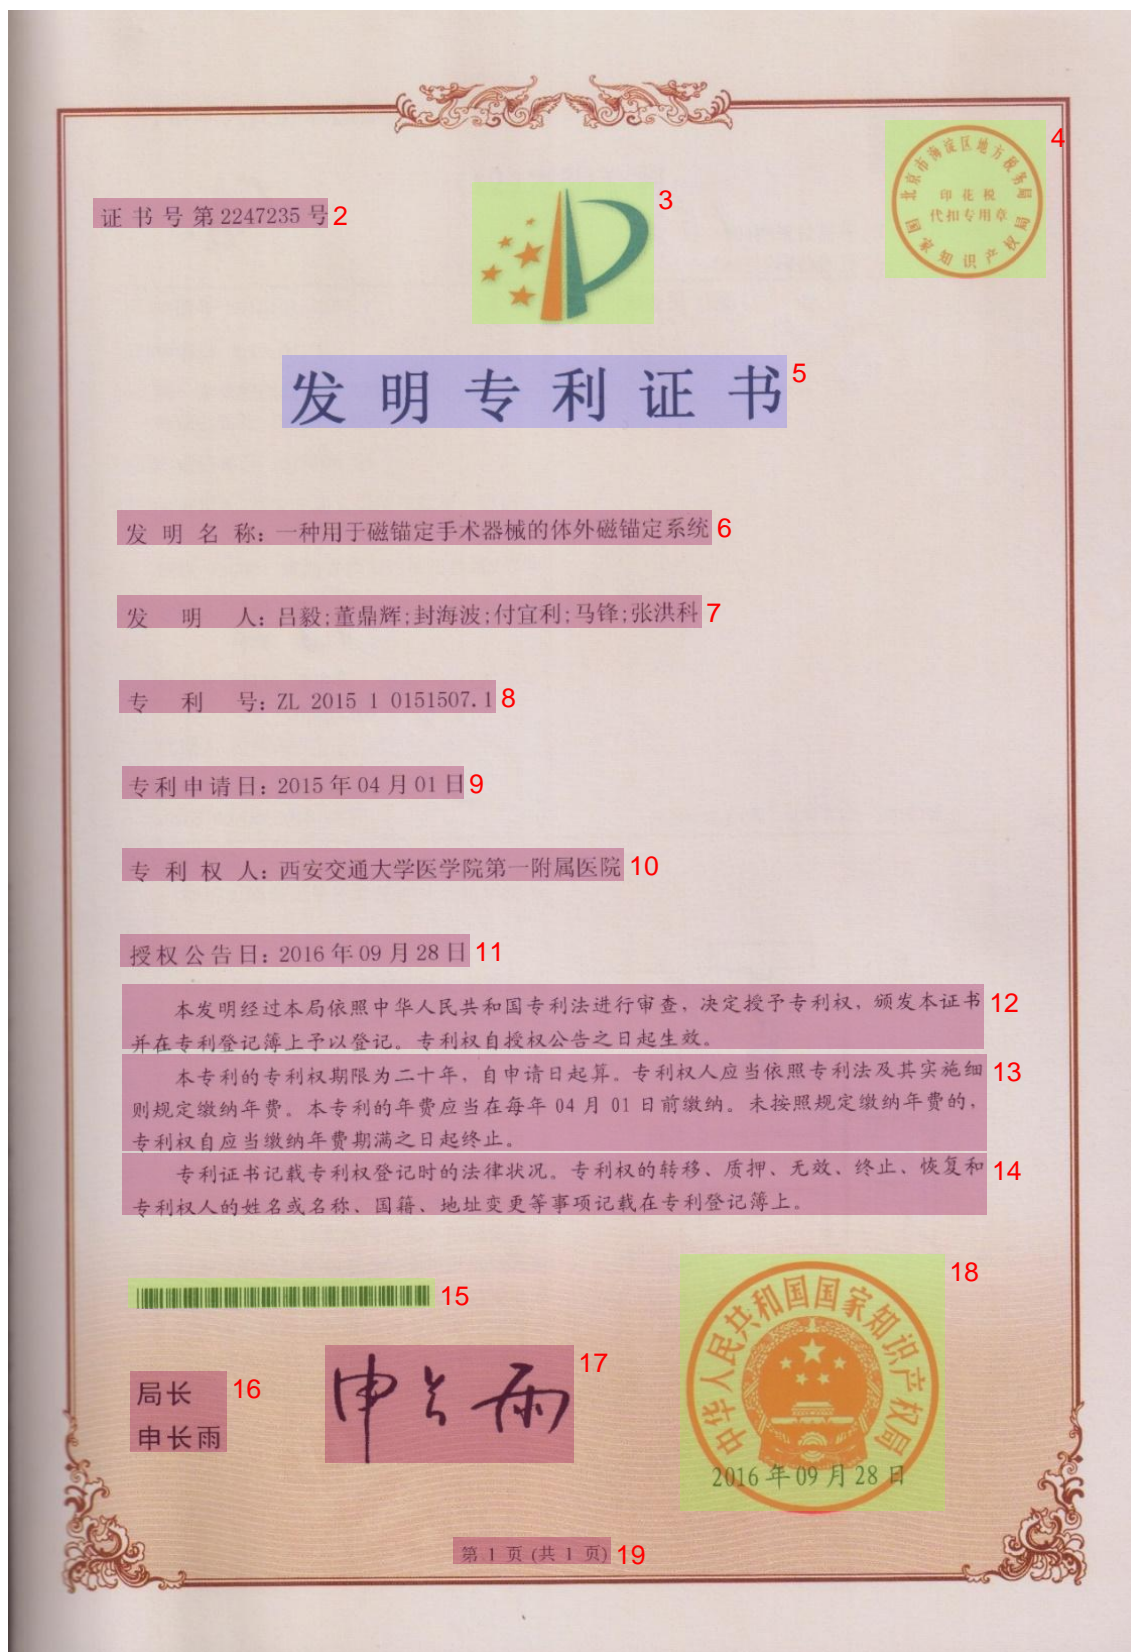 证书号第2247235号
2
3
北京市海淀区地方税务局
印花税
代扣专用章
国家知识产权局
4
发明专利证书
5
发明名称：一种用于磁锚定手术器械的体外磁锚定系统
6
发明人：吕毅;董鼎辉;封海波;付宜利;马锋;张洪科
7
专利号：ZL 2015 1 0151507.1
8
专利申请日：2015年04月01日
9
专利权人：西安交通大学医学院第一附属医院
10
授权公告日：2016年09月28日
11
本发明经过本局依照中华人民共和国专利法进行审查，决定授予专利权，颁发本证书
并在专利登记簿上予以登记。专利权自授权公告之日起生效。
12
本专利的专利权期限为二十年，自申请日起算。专利权人应当依照专利法及其实施细
则规定缴纳年费。本专利的年费应当在每年04月01日前缴纳。未按照规定缴纳年费的，
专利权自应当缴纳年费期满之日起终止。
13
专利证书记载专利权登记时的法律状况。专利权的转移、质押、无效、终止、恢复和
专利权人的姓名或名称、国籍、地址变更等事项记载在专利登记簿上。
14
15
局长
申长雨
16
申长雨
17
中华人民共和国国家知识产权局
2016年09月28日
18
第1页(共1页)
19